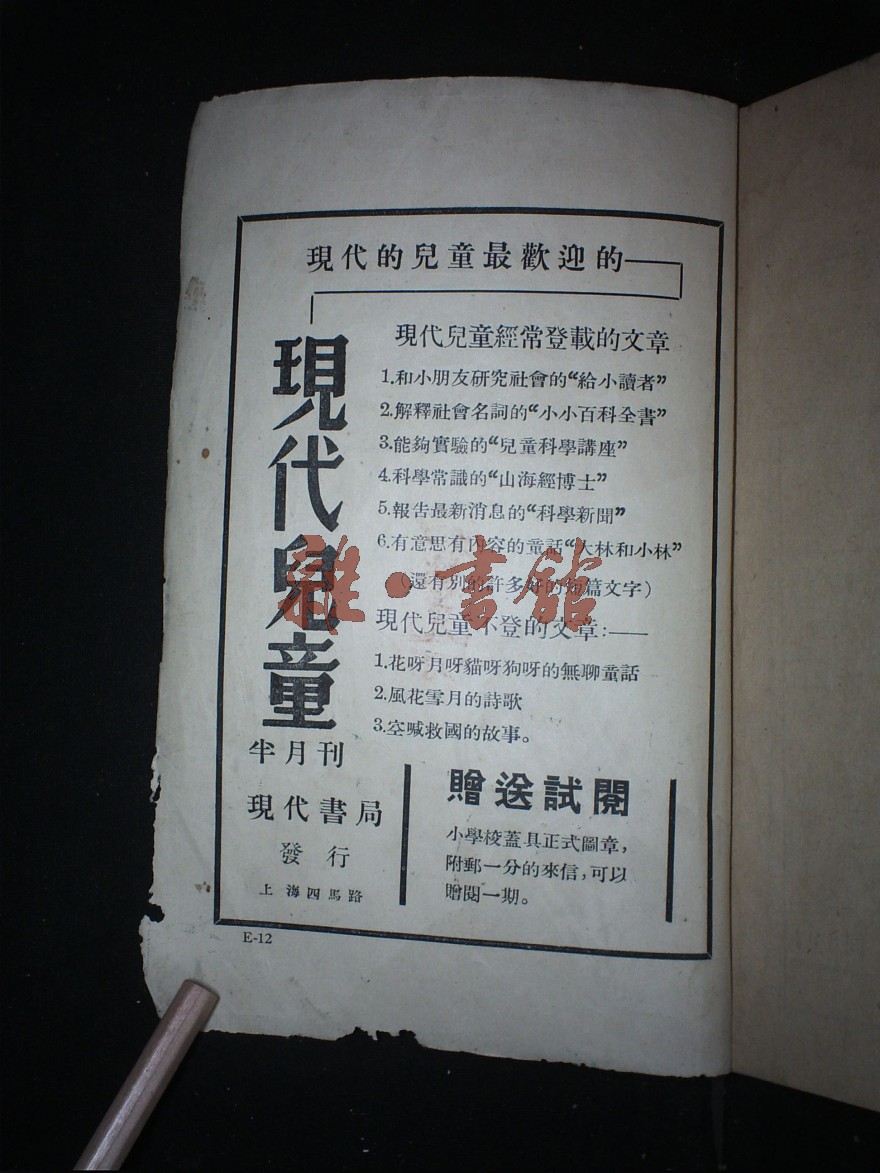 現代的兒童最歡迎的——
現代兒童
半月刊
現代書局
發行
上海四馬路
現代兒童經常登載的文章
1.和小朋友研究社會的“給小讀者”
2.解釋社會名詞的“小小百科全書”
3.能夠實驗的“兒童科學講座”
4.科學常識的“山海經博士”
5.報告最新消息的“科學新聞”
6.有意思有內容的童話“大林和小林”
(還有別的許多好的短篇文字)
現代兒童不登的文章:——
1.花呀月呀貓呀狗呀的無聊童話
2.風花雪月的詩歌
3.空喊救國的故事。
贈送試閱
小學校蓋具正式圖章,
附郵一分的來信,可以
贈閱一期。
E-12
雜·書館